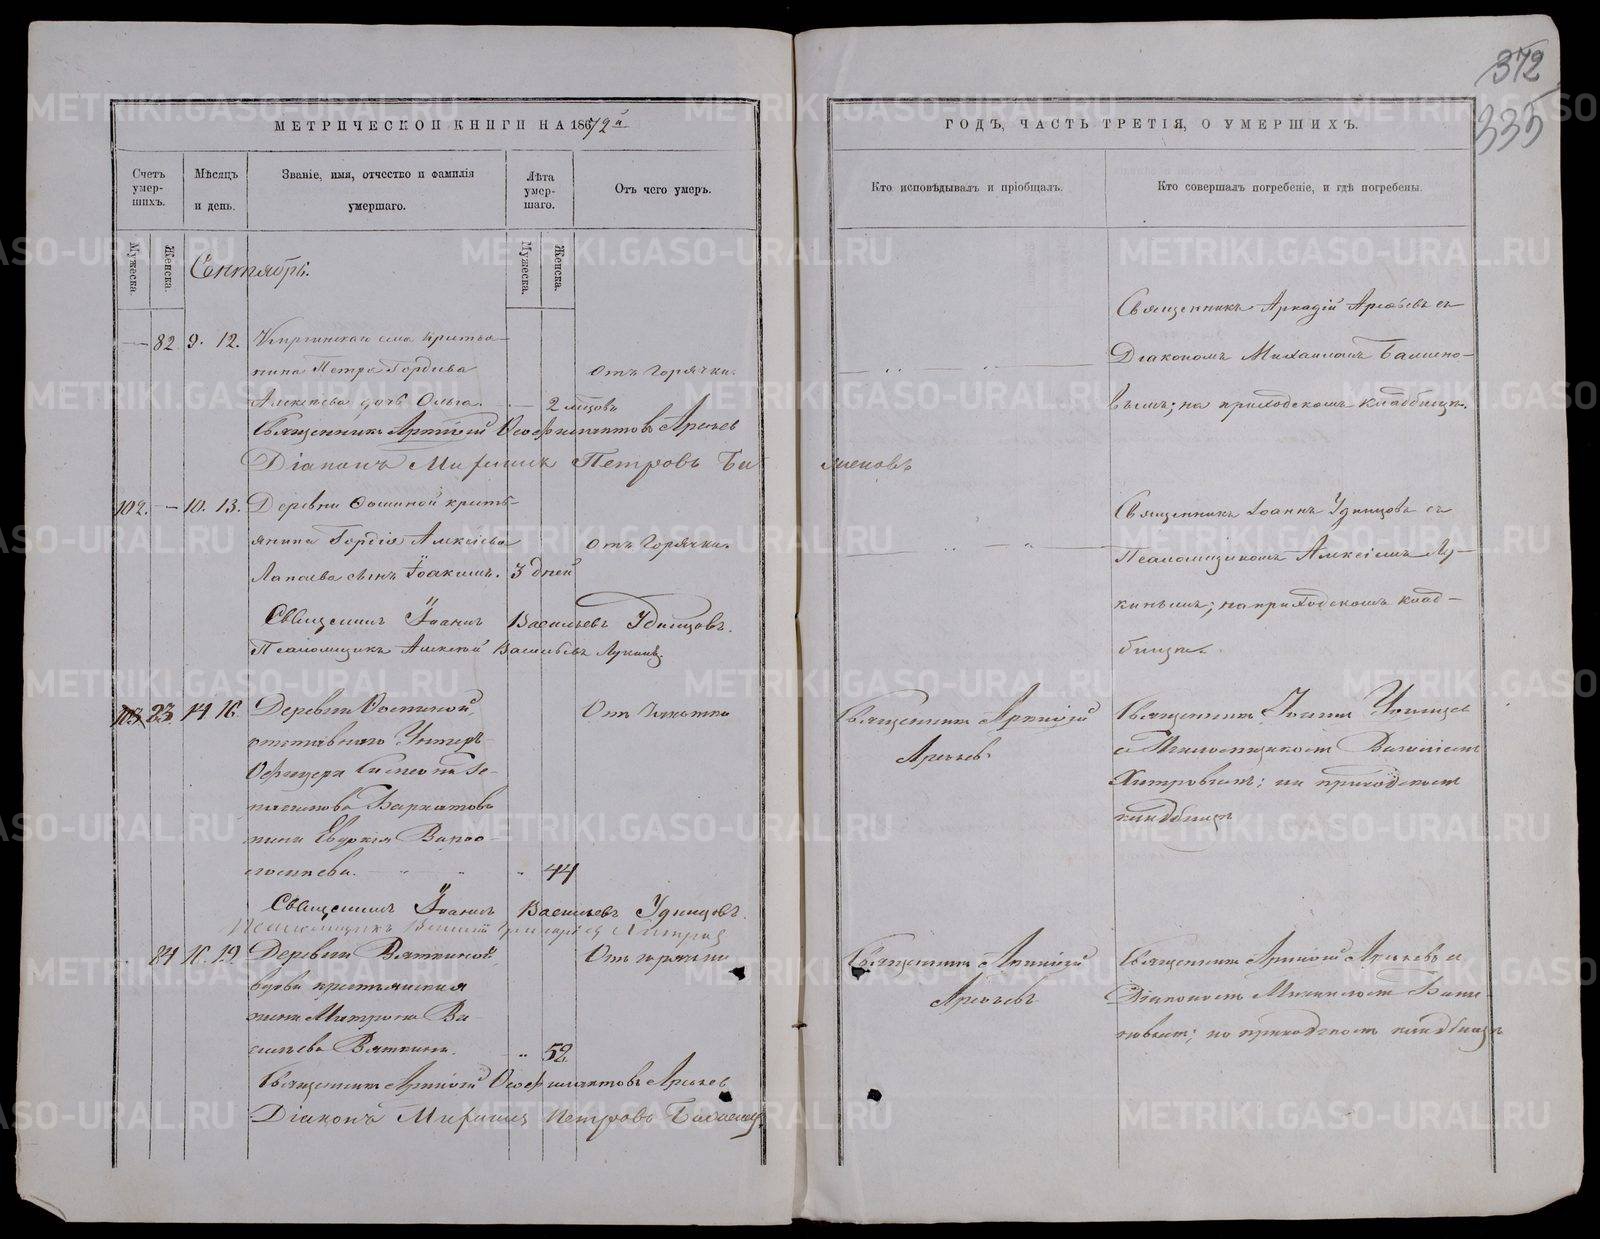 372
335
МЕТРИЧЕСКОЙ КНИГИ НА 1872й
ГОДЪ, ЧАСТЬ ТРЕТІЯ, О УМЕРШИХЪ.
Счетъ умер-шихъ.
Мѣсяцъ и день.
Званіе, имя, отчество и фамилія умершаго.
Лѣта умер-шаго.
Отъ чего умеръ.
Кто исповѣдывалъ и пріобщалъ.
Кто совершалъ погребеніе, и гдѣ погребены.
Мужеска.
Женска.
Мужеска.
Женска.
Сентябрь.
82 9. 12. села крестья-
нина Петра Гордѣева
Алексѣева дочь Ольга. 2 мѣсяцовъ
Отъ горячки.
Священникъ Аркадій Арефьевъ съ
Діакономъ Михаиломъ Башлено-
вымъ; на приходскомъ кладбищѣ.
Священникъ Аркадій Феофилактовъ Арефьев
Діаконъ Михаилъ Петровъ
102. — 10. 13. Деревни Фоминой кресть-
янина Гордія Алексѣева
Лапаева сынъ Іоакимъ. 3 дней
Отъ горячки.
Священникъ Іоаннъ Удинцовъ съ
Псаломщикомъ Алексіемъ Лу-
кинымъ; на приходскомъ клад-
бищѣ.
Священникъ Іоаннъ Васильевъ Удинцовъ.
Псаломщикъ Алексѣй Васильевъ Лукинъ
103 23. 14 16. Деревни Фоминой,
отставнаго Унтеръ-
Офицера Симеона
Бархатова
жена Евдокія Варѳо-
ломѣева. 44
Отъ чахотки
Священникъ Аркадій
Арефьевъ
Священникъ Іоаннъ Удинцев
съ Псаломщикомъ Василіемъ
Хитровымъ; на приходскомъ
кладбищѣ
Священникъ Іоаннъ Васильевъ Удинцовъ.
Псаломщикъ Василій Григорьев Хитров
84 16. 19. Деревни Вяткиной
вдова крестьянская
жена Митрофана Ва-
сильева Вяткина. 52.
Отъ горячки
Священникъ Аркадій
Арефьевъ
Священникъ Аркадій Арефьевъ съ
Діакономъ Михаиломъ
на приходскомъ кладбищѣ
Священникъ Аркадій Феофилактовъ Арефьев
Діаконъ Михаилъ Петровъ
METRIKI.GASO-URAL.RU